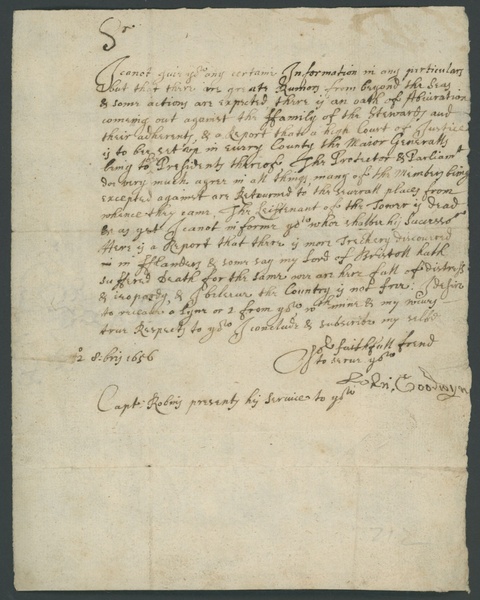 Sr
I canot give you any certaine Information in any particulars
but that there are greate Rumors from beyond the Seas
& some actions are expected there is an oath of Abiuration
coming out against the ffamily of the Stewarts and
their adherents, & a Report that a high Court of Justice
is to be set up in every County the Maior Generalls
being the Presidents thereof. The Protector & Parliamt
doe very much agree in all things many of the Members being
excepted against are Retourned to the severall places from
whence they came. The Leiftenant off the Tower is dead
& as yet I canot informe you who shalbe his Sucessor
Here is a Report that there is more Trechery discovered
in fflanders & some say my Lord of Bristoll hath
suffered Death for the same wee are here full of distress
& ieopardy, & I beleive the Country is not free: I desire
to receive a Lyne or 2 from you wth mine & my wives
true Respects to you I conclude & subscribe my selfe
Yor faithfull frend
to serve you
12 8:bris 1656
Goodwyn
Capt. Robins presents his Service to you